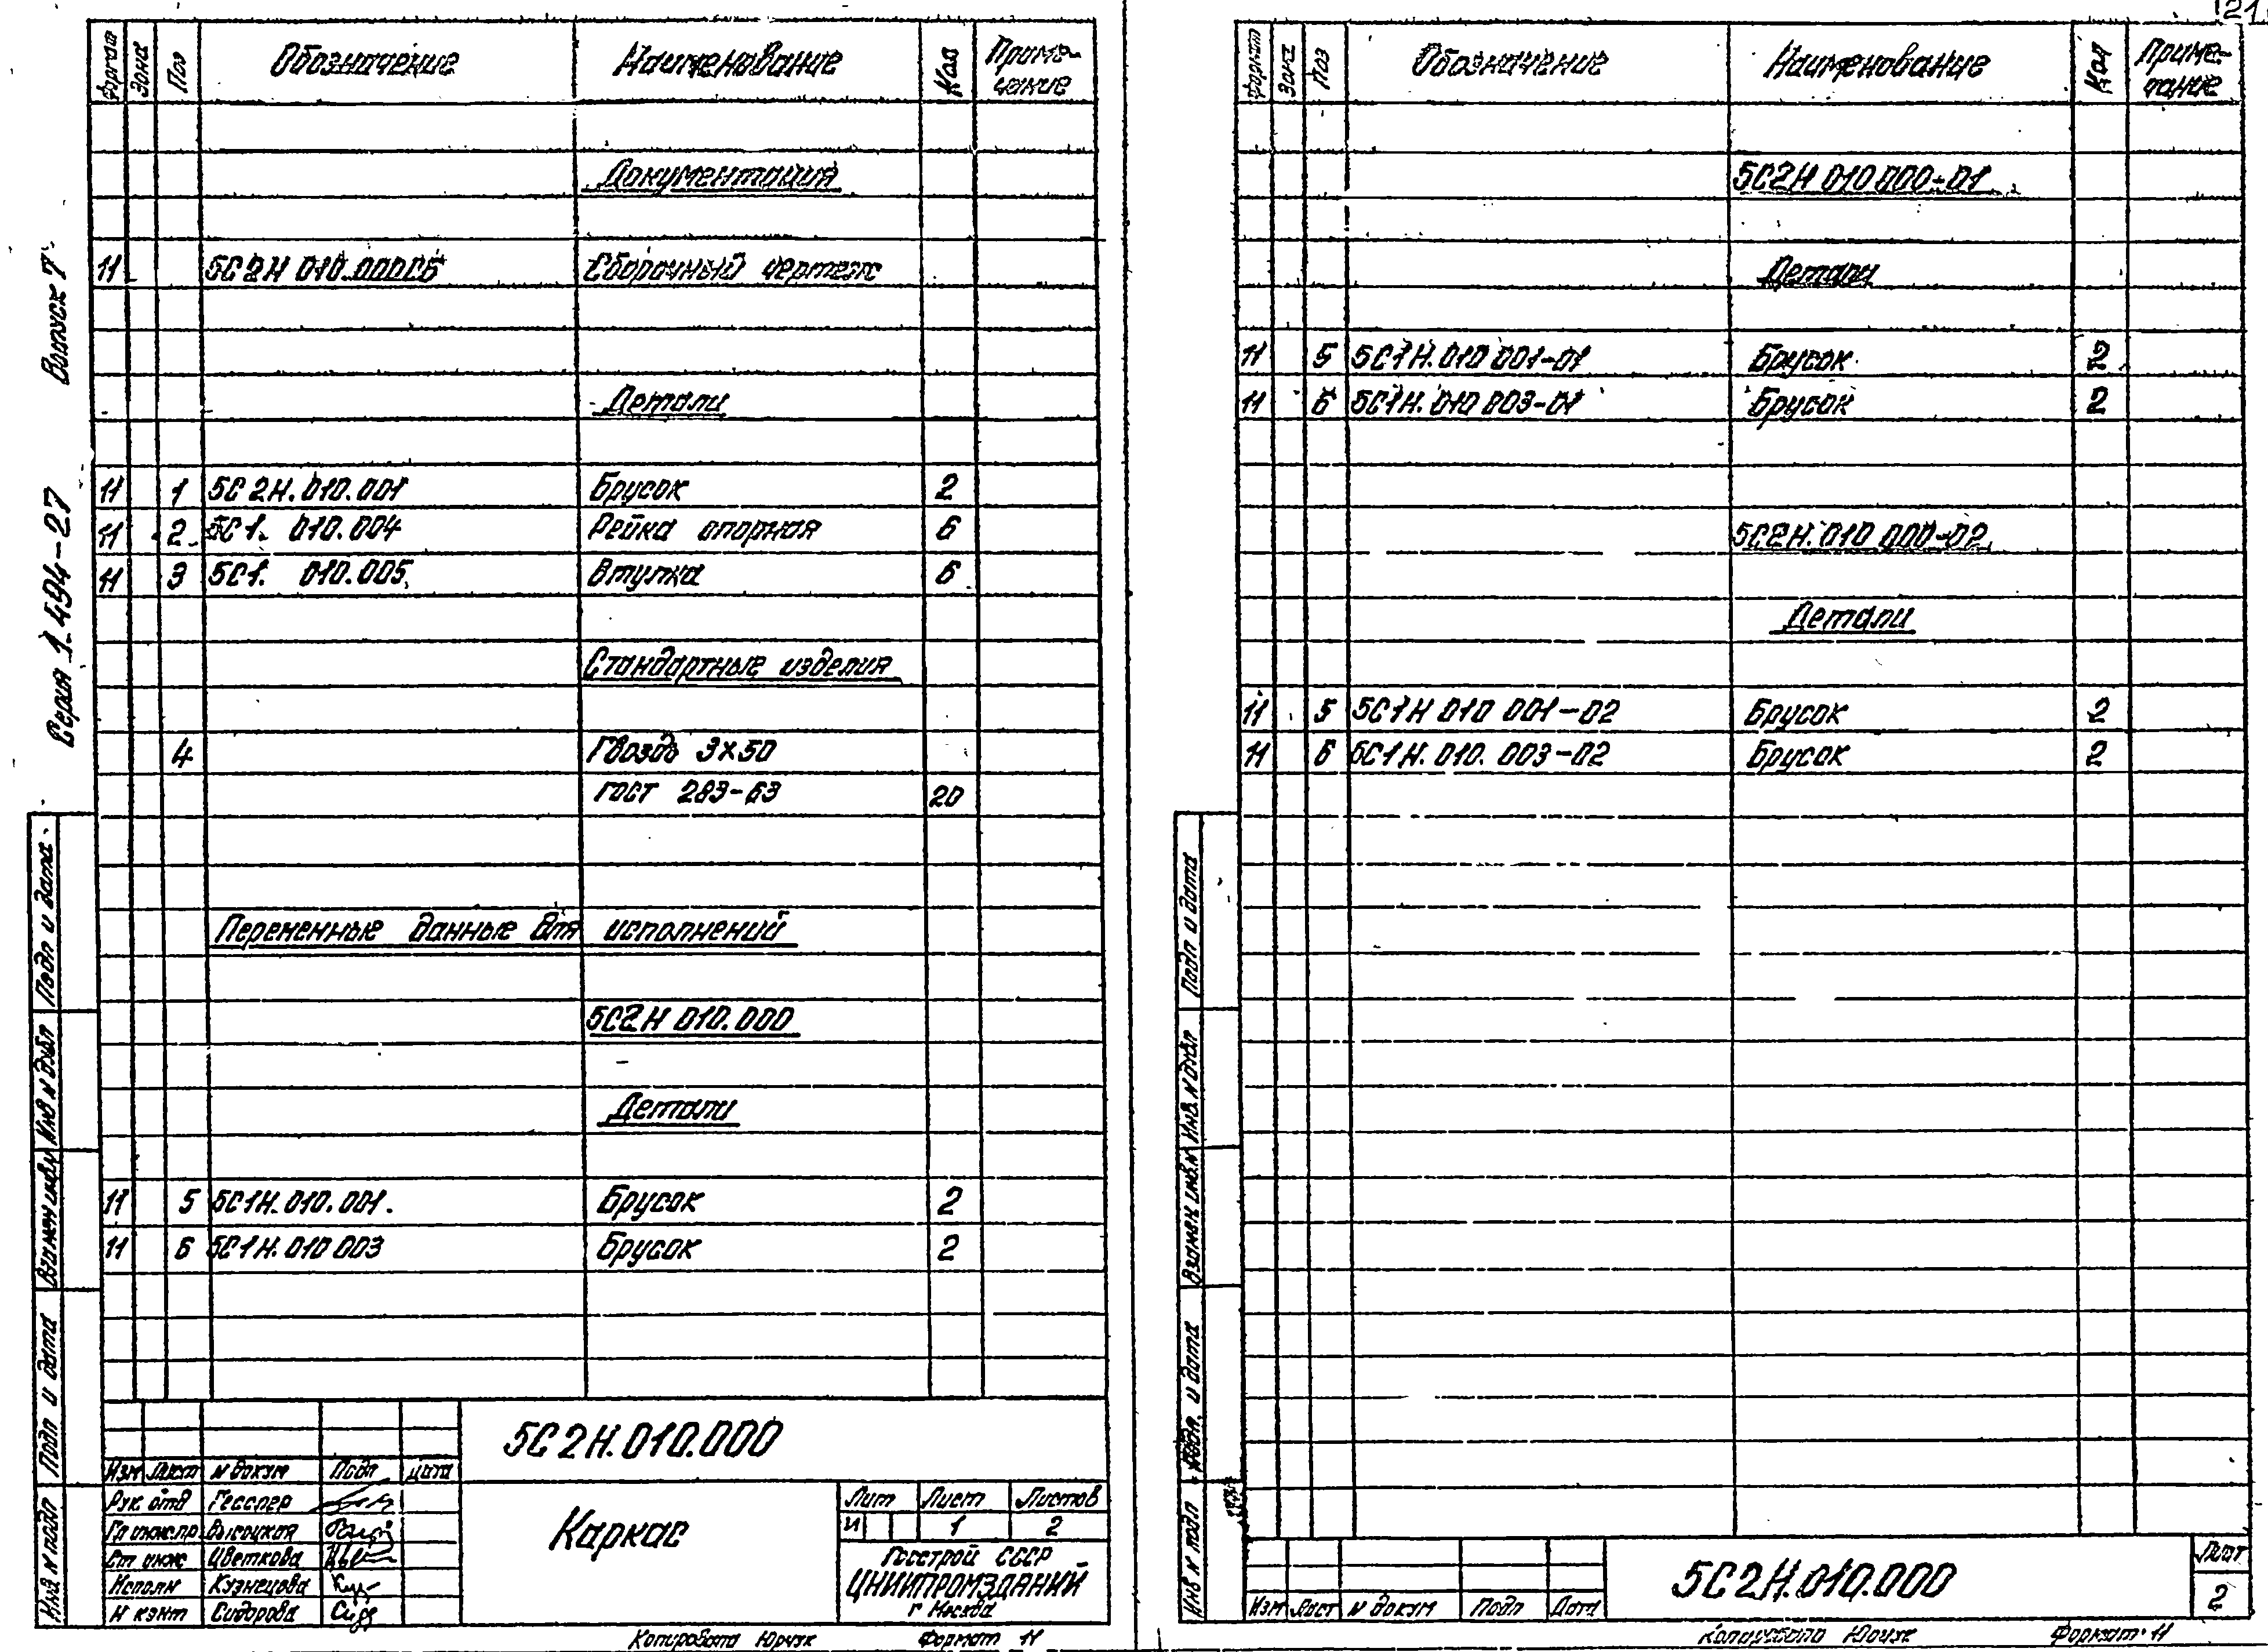 21
Серия 1.494-27 Выпуск 7
Формат Зона Поз Обозначение Наименование Кол Примечание
Документация
11 5С2Н 010.000СБ Сборочный чертеж
Детали
11 1 5С2Н.010.001 Брусок 2
11 2 5С1. 010.004 Рейка опорная 6
11 3 5С1. 010.005 Втулка 6
Стандартные изделия
4 Гвоздь 3×50
ГОСТ 283-63 20
Переменные данные для исполнений
5С2Н 010.000
Детали
11 5 5С1Н.010.001. Брусок 2
11 6 5С1Н.010 003 Брусок 2
Инв № подл Подп и дата Взамен инв.№ Инв № дубл Подп и дата
5С2Н.010.000
Изм Лист № докум Подп Дата
Рук отд Гесслер
Гл инж.пр. Высоцкая
Ст инж Цветкова
Исполн Кузнецова
Н конт Сидорова
Каркас
Лит Лист Листов
И 1 2
Госстрой СССР
ЦНИИПРОМЗДАНИЙ
г Москва
Копировала Формат 11
Формат Зона Поз Обозначение Наименование Кол Примечание
5С2Н 010 000-01
Детали
11 5 5С1Н.010 001-01 Брусок 2
11 6 5С1Н.010 003-01 Брусок 2
5С2Н.010 000-02
Детали
11 5 5С1Н 010 001-02 Брусок 2
11 6 5С1Н.010. 003-02 Брусок 2
Инв № подл Подп. и дата Взамен инв.№ Инв.№ дубл Подп и дата
Изм Лист № докум Подп Дата
5С2Н.010.000
Лист
2
Копировала Формат 11